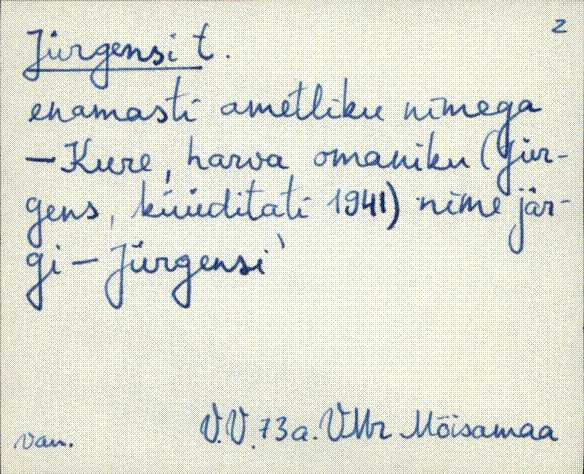 2
Jürgensi t.
enamasti ametliku nimega
– Kure, harva omaniku (Jür-
gens, küüditati 1941) nime jär-
gi – Jürgensi`
Van. V.V. 73a. VMr Mõisamaa